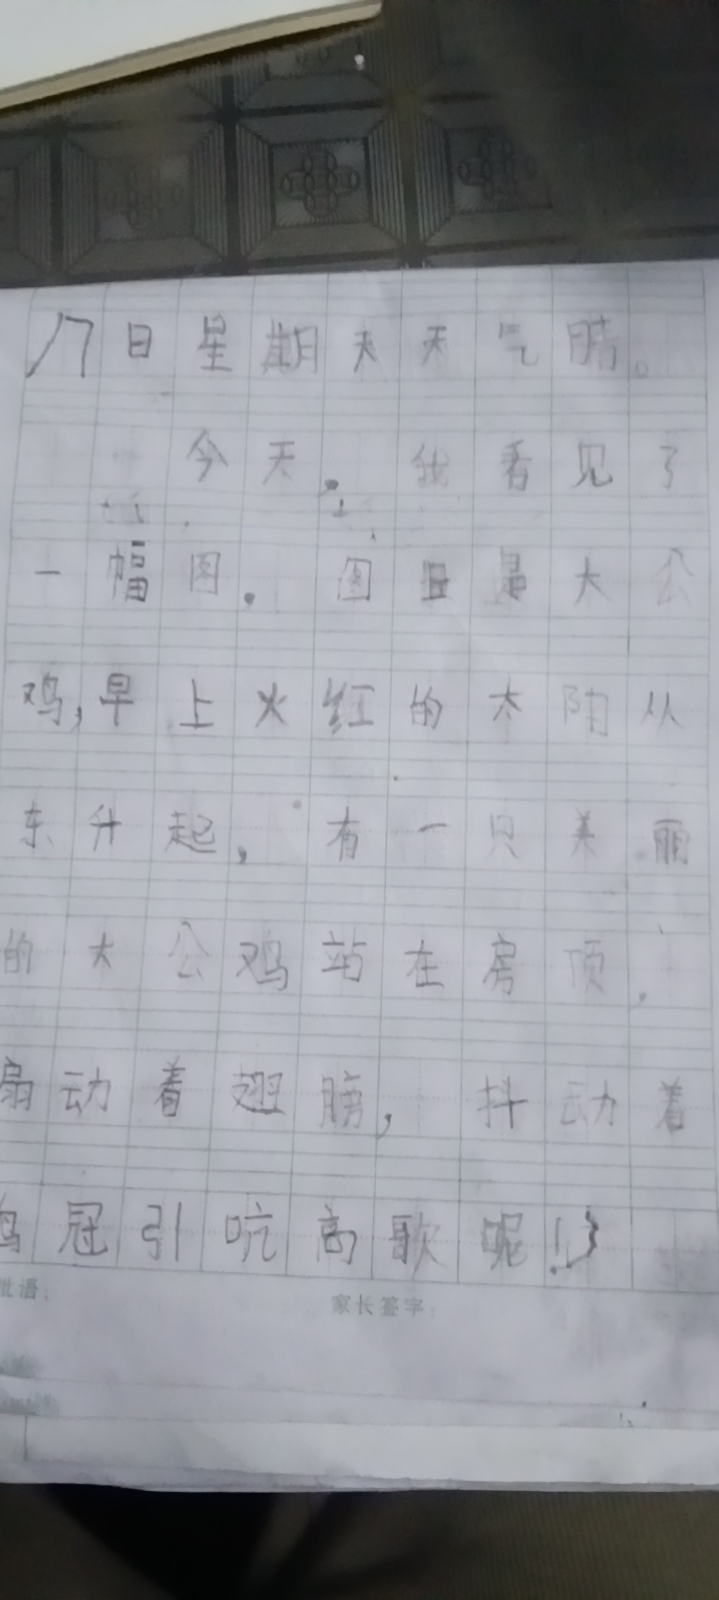 17日星期天天气晴。
今天.我看见了
一幅图.图且是大公
鸡,早上火红的太阳从
东升起,有一只美丽
的大公鸡站在房顶,
扇动着翅膀,抖动着
鸡冠引吭高歌呢!
批语:
家长签字: